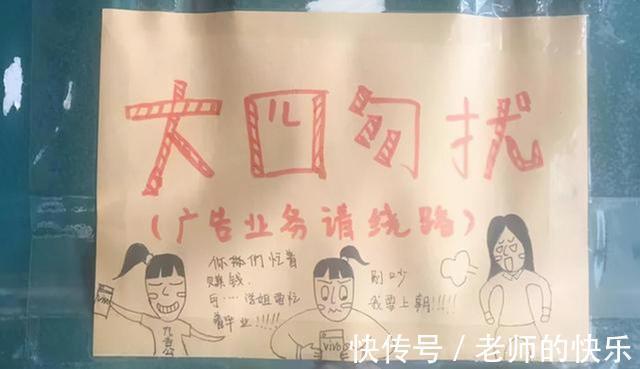 大四勿扰
(广告业务请绕路)
你们忙着
赚钱
可……诸姐要忙
着毕业!!!!!
别吵
我要上朝!!!!
vivo
快传号 / 老师的快乐